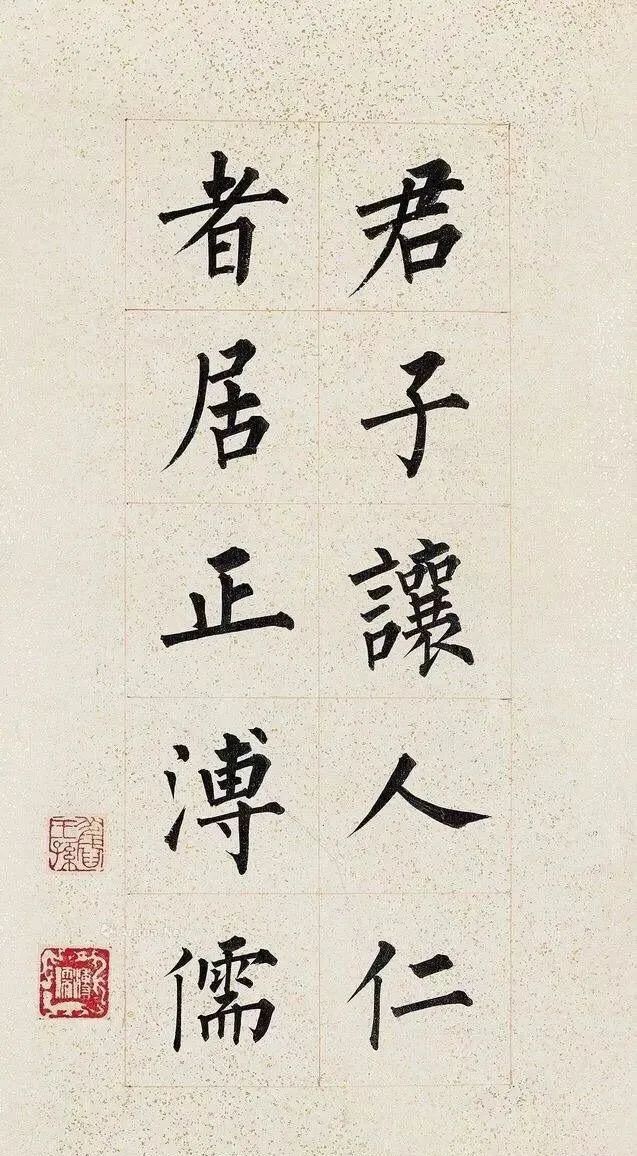 君子讓人仁
者居正溥儒